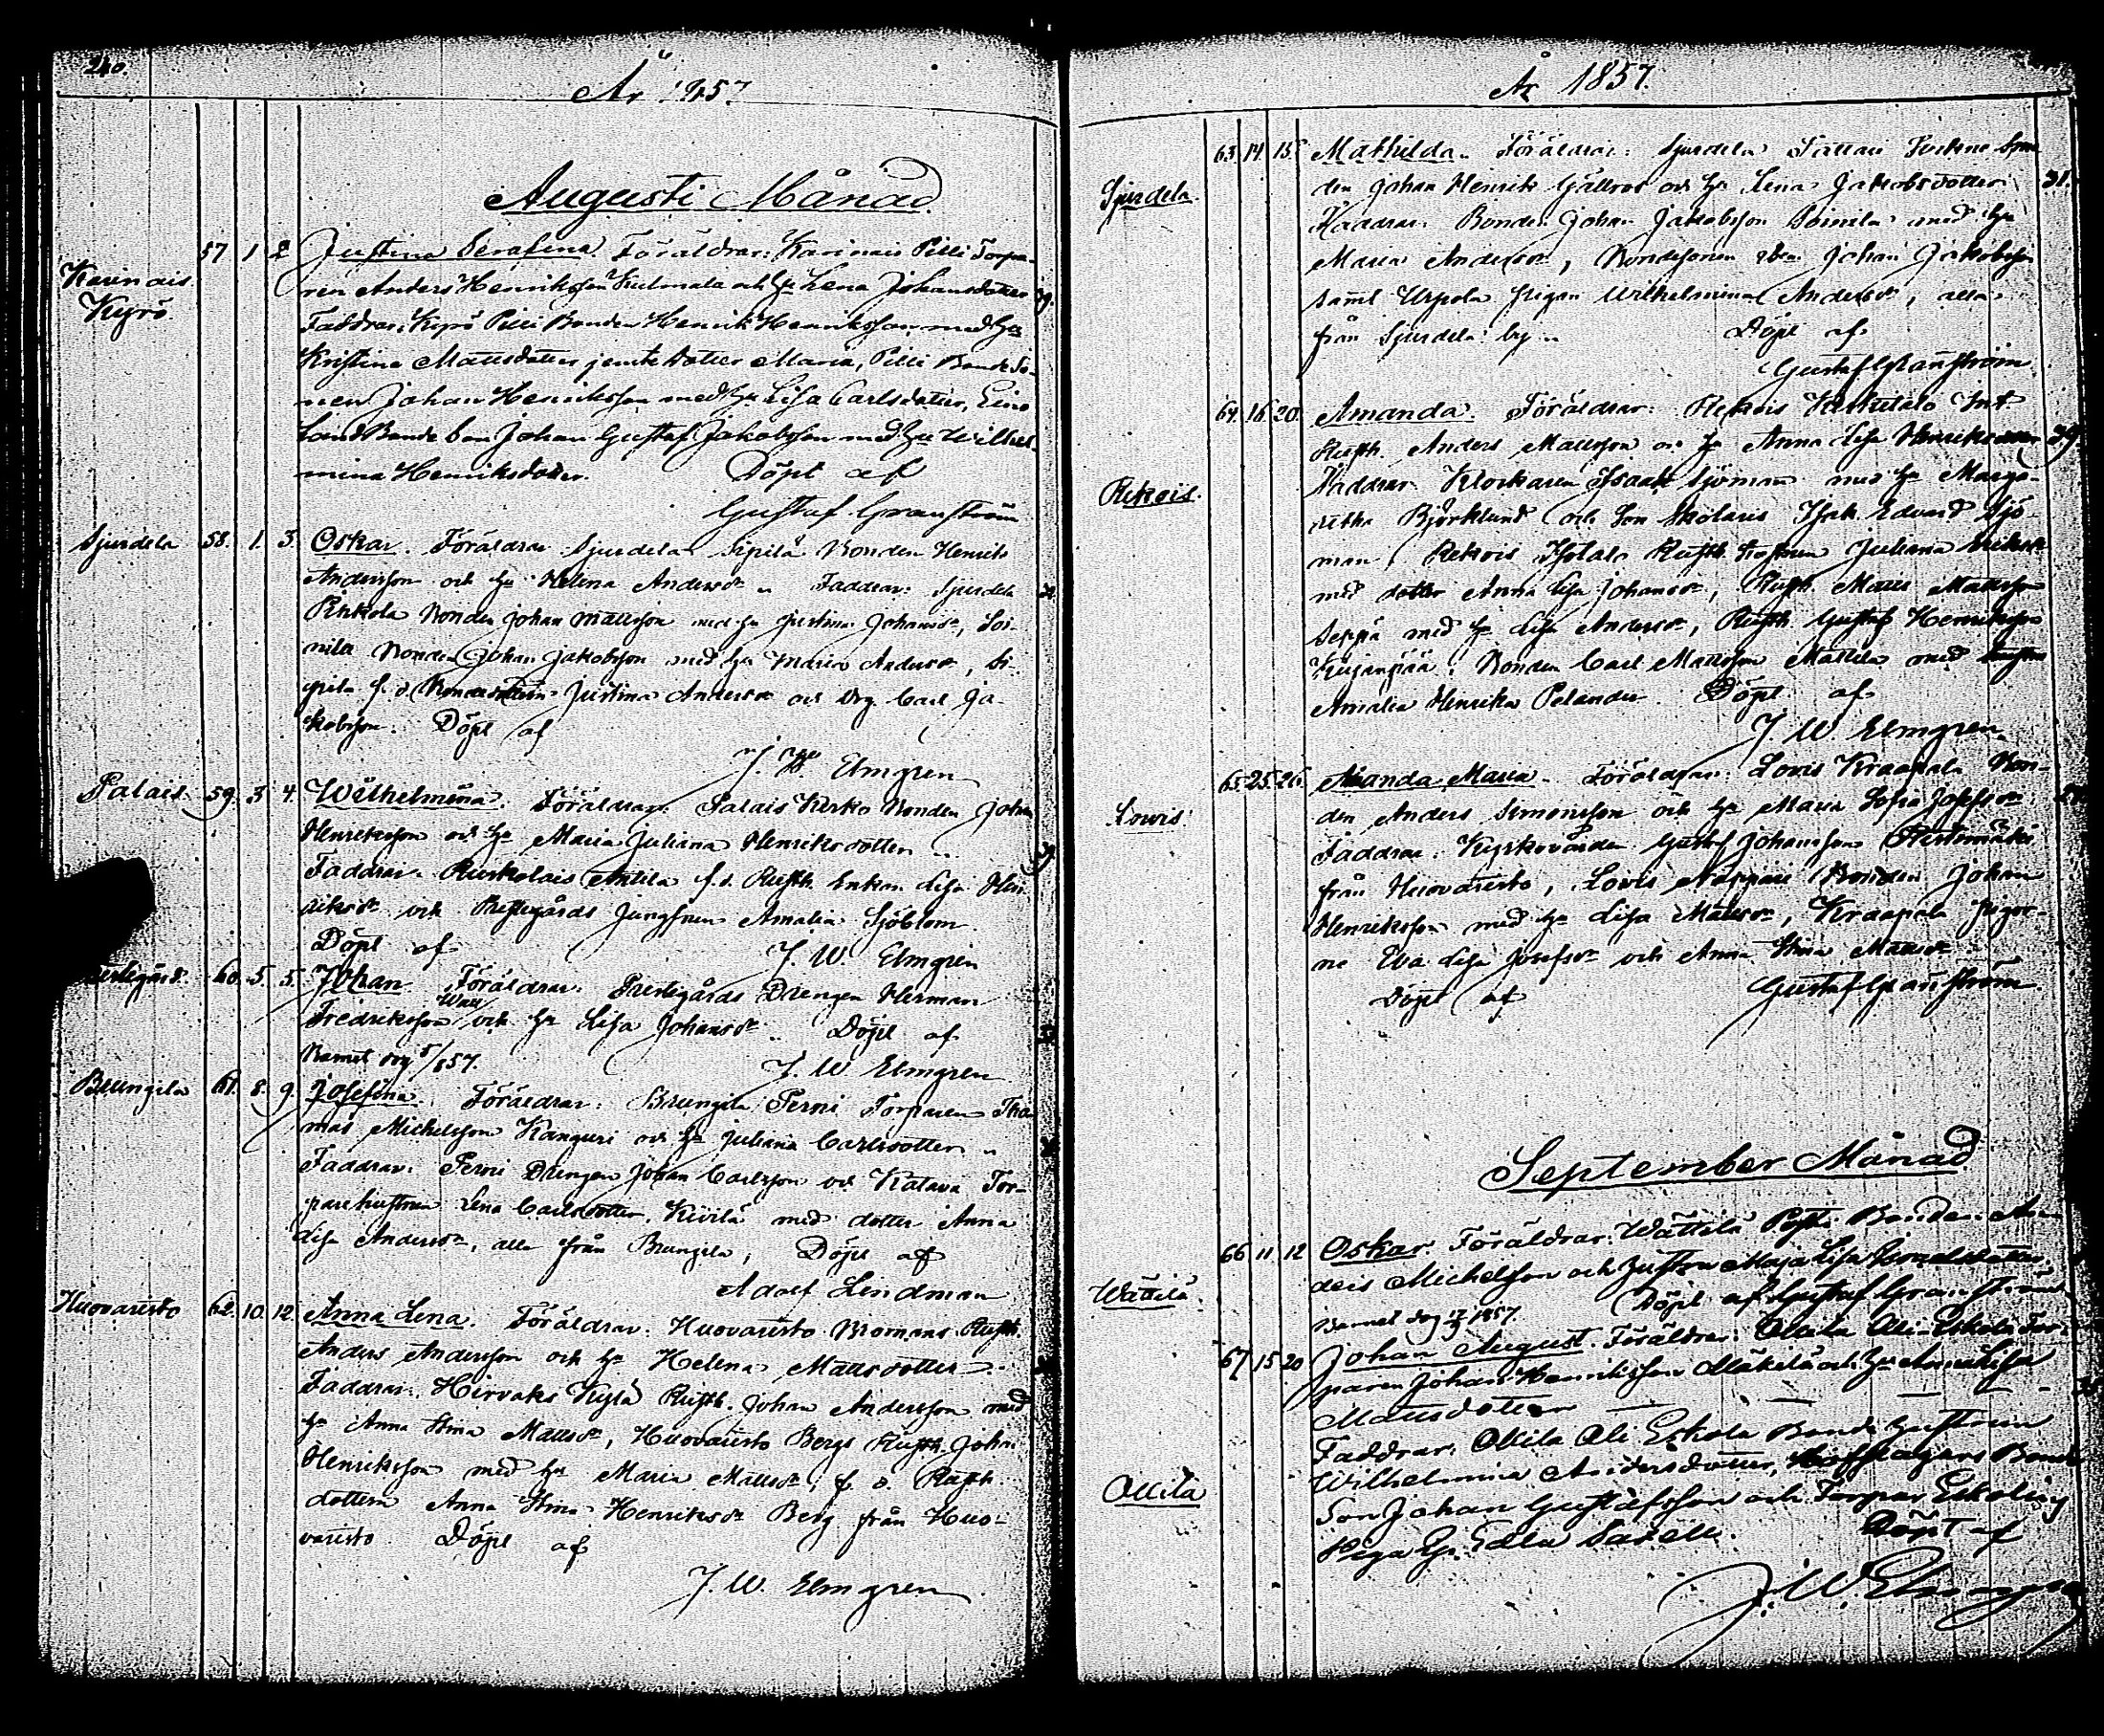 240.
År 1857
Augusti Månad
Karinais
Kyrö
57 1 2 Justina Serafina. Föräldrar: Karinais Pilli Torpa-
ren Anders Henriksson Kulmala och hu Lena Johansdotter
Faddrar: Kyrö Pilli Bonden Henrik Henriksson med hu
Kristina Mattsdotter jemte dotter Maria, Pilli Bonde So-
nen Johan Henriksson med hu Lisa Carlsdotter, Eino
Land Bonde Son Johan Gustaf Jakobsson med hu Wilhel-
mina Henriksdotter. Döpt af
Gustaf Granström
Sjurdela 58. 1. 3. Oskar. Föräldrar Sjurdela Sipilä Bonden Henrik
Andersson och hu Helena Andersdr. Faddrar: Sjurdela
Pirkola Bonden Johan Mattsson med hu Justina Johansdr, Soi-
nila Bonden Johan Jakobsson med hu Maria Andersdr, Si-
pilä f. d. Justina Andersdr och Drg. Carl Ja-
kobsson. Döpt af
J. W. Elmgren
Palais. 59. 3 4. Wilhelmina. Föräldrar: Palais Kirko Bonden Johan
Henriksson och hu Maria Juliana Henriksdotter
Faddrar: Antila f. d. Rusth. Enkan Lisa Hen-
riksdr och Prestgårds Jungfrun Amalia Sjöblom.
Döpt af J. W Elmgren
60. 5. 5. Johan Föräldrar: Prestegårds Drengen Herman
Fredriksson Wall och hu Lisa Johansdr. Döpt af
Barnet dog 5/8 57. J. W Elmgren
Brungila 61. 8. 9. Josefina. Föräldrar: Brungila Perni Torparen Tho-
mas Michelsson Kanguri och hu Juliana Carlsdotter
Faddrar: Perni Drengen Johan Carlsson och Katava Tor-
parehustrun Lena Carlsdotter, Kivilä med dotter Anna
Lisa Andersdr, alla från Brungila, Döpt af
Adolf Lindman
Huovaristo 62. 10. 12. Anna Lena. Föräldrar: Huovaristo Bromans Rusth.
Anders Andersson och hu Helena Mattsdotter
Faddrar: Hirvaks Kylä Rusth. Johan Andersson med
hu Anna Stina Mattsdr, Huovaristo Bergs Rusth. Johan
Henriksson med hu Maria Mattsdr, f. d. Rusth.
dottern Anna Stina Henriksdr Berg från Huo-
varisto. Döpt af
J. W. Elmgren
År 1857.
Sjurdela.
63. 14. 15. Mathilda. Föräldrar: Sjurdela
den Johan Henrik Gällros och hu Lena Jakobsdotter 31.
Faddrar: Bonden Johan Jakobsson Soinila med hu
Maria Andersdr, Bondesonen Johan Jakobsson
samt Uspola pigan Wilhelmina Andersdr, alla
från Sjurdela by. Döpt af
Gustaf Granström
Rekois.
64. 16. 20. Amanda. Föräldrar: Rekois
Rusth. Anders Mattsson och hu Anna Lisa Henriksdotter
Faddrar: Klockaren Isaak Sjöman med hu Marga-
retha Björklund och Son Skolaris Isak Edvard Sjö-
man, Rekois Isotalo Rusth. Juliana
med dotter Anna Lisa Johansdr, Rusth. Matts Mattsson
Seppä med hu Lisa Andersdr, Rusth Gustaf Henriksson
Kujanpää, Bonden Carl Mattsson Mattila med
Amalia Henrika Pelander. Döpt af
J W Elmgren
Lowis.
65. 25. 26. Amanda Maria. Föräldrar: Lovis Kraapala Bon-
den Anders Simonsson och hu Maria Sofia Josefsdr.
Faddrar: Kyrkovärden Gustaf Johansson
från Huovaristo, Lovis Bonden Johan
Henriksson med hu Lisa Mattsdr, Kraapala pigor-
na Eva Lisa Josefsdr och Anna Stina Mattsdr
Döpt af Gustaf Granström
September Månad
Wättilä.
66 11 12 Oskar. Föräldrar: Wättilä Bonden An-
ders Michelsson och hustru Maja Lisa
Barnet dog 1857. Döpt af Gustaf Granström
67 15 20 Johan August. Föräldrar: Ollila Ali-Eskola Tor-
paren Johan Henriksson Mäkilä och hu Anna Lisa
Mattsdotter
Ollila
Faddrar: Ollila Ali Eskola Bonde hustrun
Wilhelmina Andersdotter, Bonde
Son Johan Gustafsson och Torpar
Edla Döpt af
J. W. Elmgren